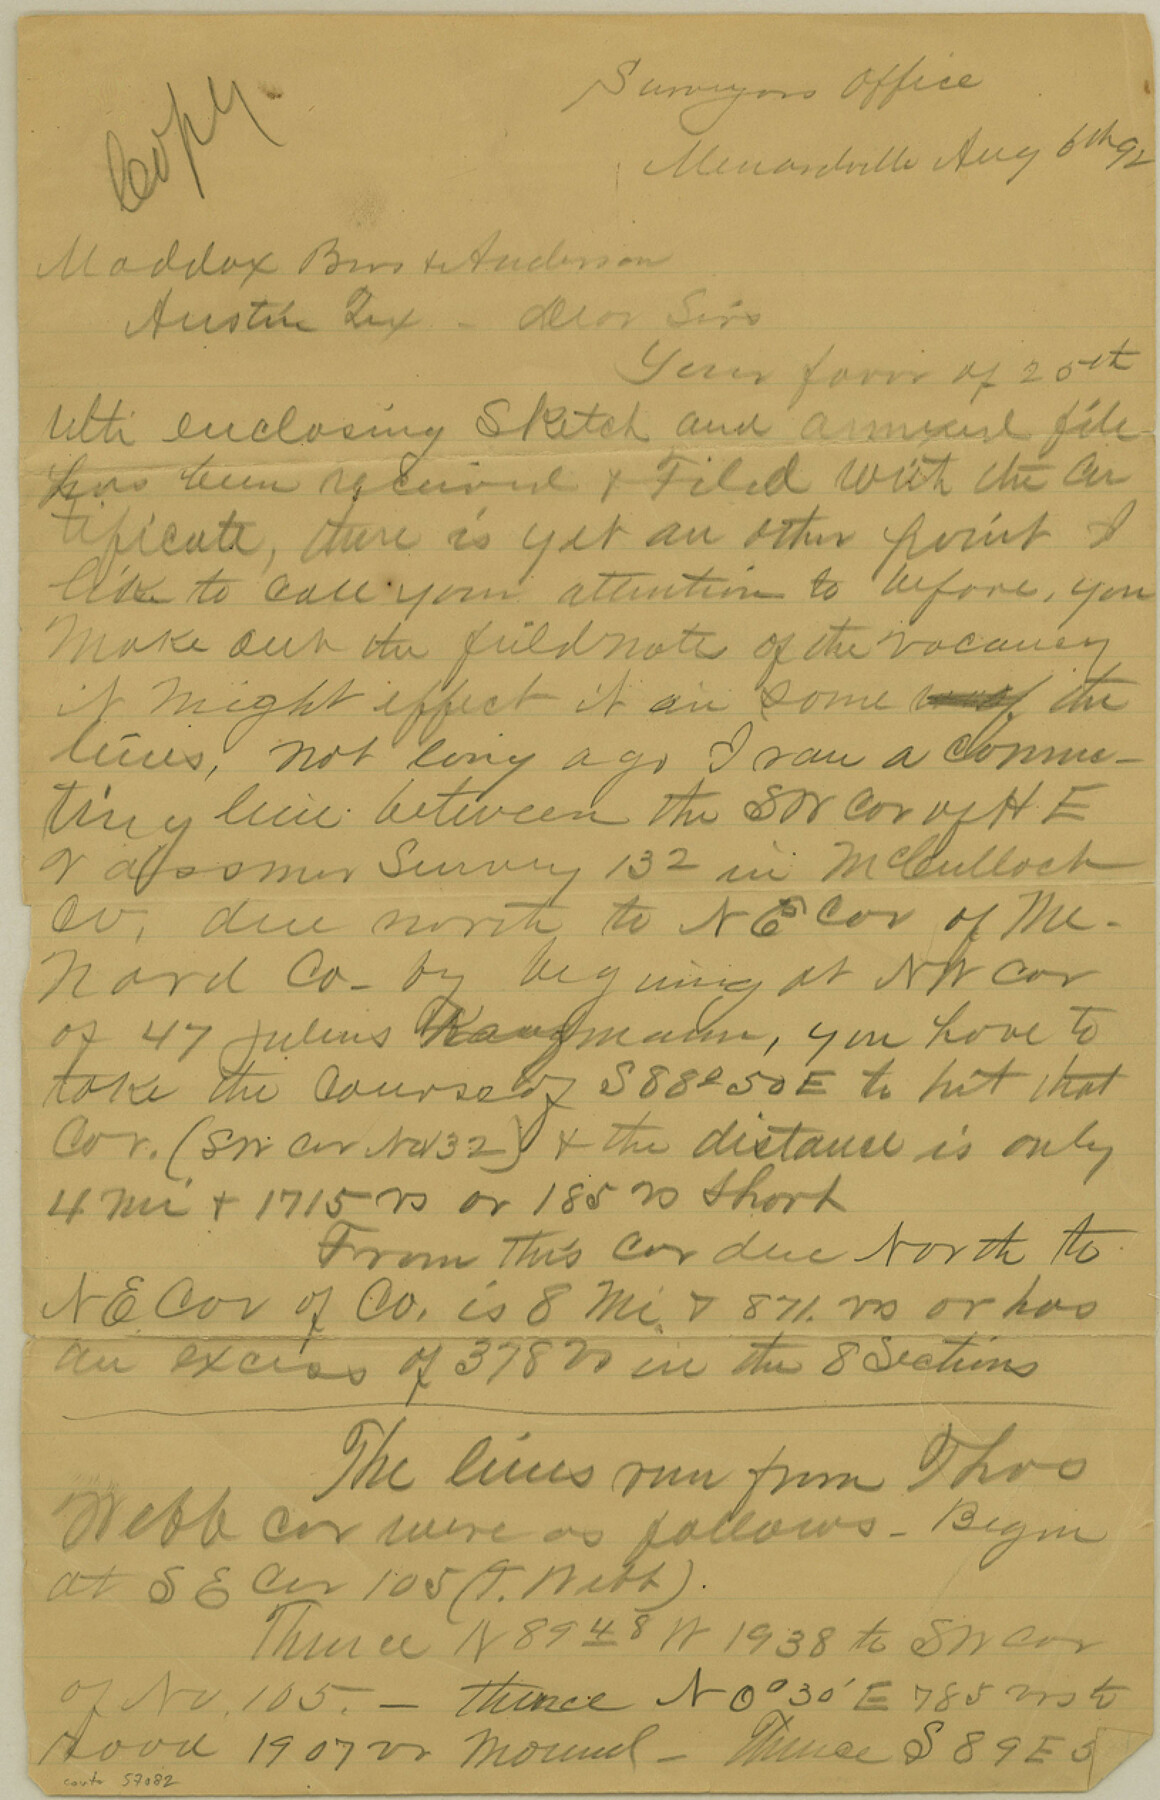 Copy
Surveyors Office
Menardville Aug 6th 92
Maddox Bros & Anderson
Austin Tex - Dear Sirs
Your favor of 25th
Ulti enclosing Sketch and annexed file
has been received & Filed with the Cer
tificate, there is yet an other point I
like to call your attention to before, you
Make out the fieldnote of the vacancy
it might effect it in some the
lines, not long ago I ran a connec-
ting line between the SW Cor of H E
& Survey 132 in McCulloch
Co, due north to NE Cor of Me-
nard Co - by begining at NW Cor
of 47 Julius Kaufmann, you have to
take the Course of S 88° 50 E to hit that
Cor. (SW Cor No 132) & the distance is only
4 Mi & 1715 vs or 185 vs short
From this Cor due North to
NE Cor of Co. is 8 Mi & 871. vs or has
an excess of 378 vs in the 8 Sections
The lines run from Thos
Webb Cor were as follows - Begin
at S E Cor 105 (T. Webb).
Thence N 89 48 W 1938 to SW Cor
of No. 105. - thence N 0° 30' E 785 vrs to
road 1907 vr Mound - Thence S 89 E 5
cont 57082